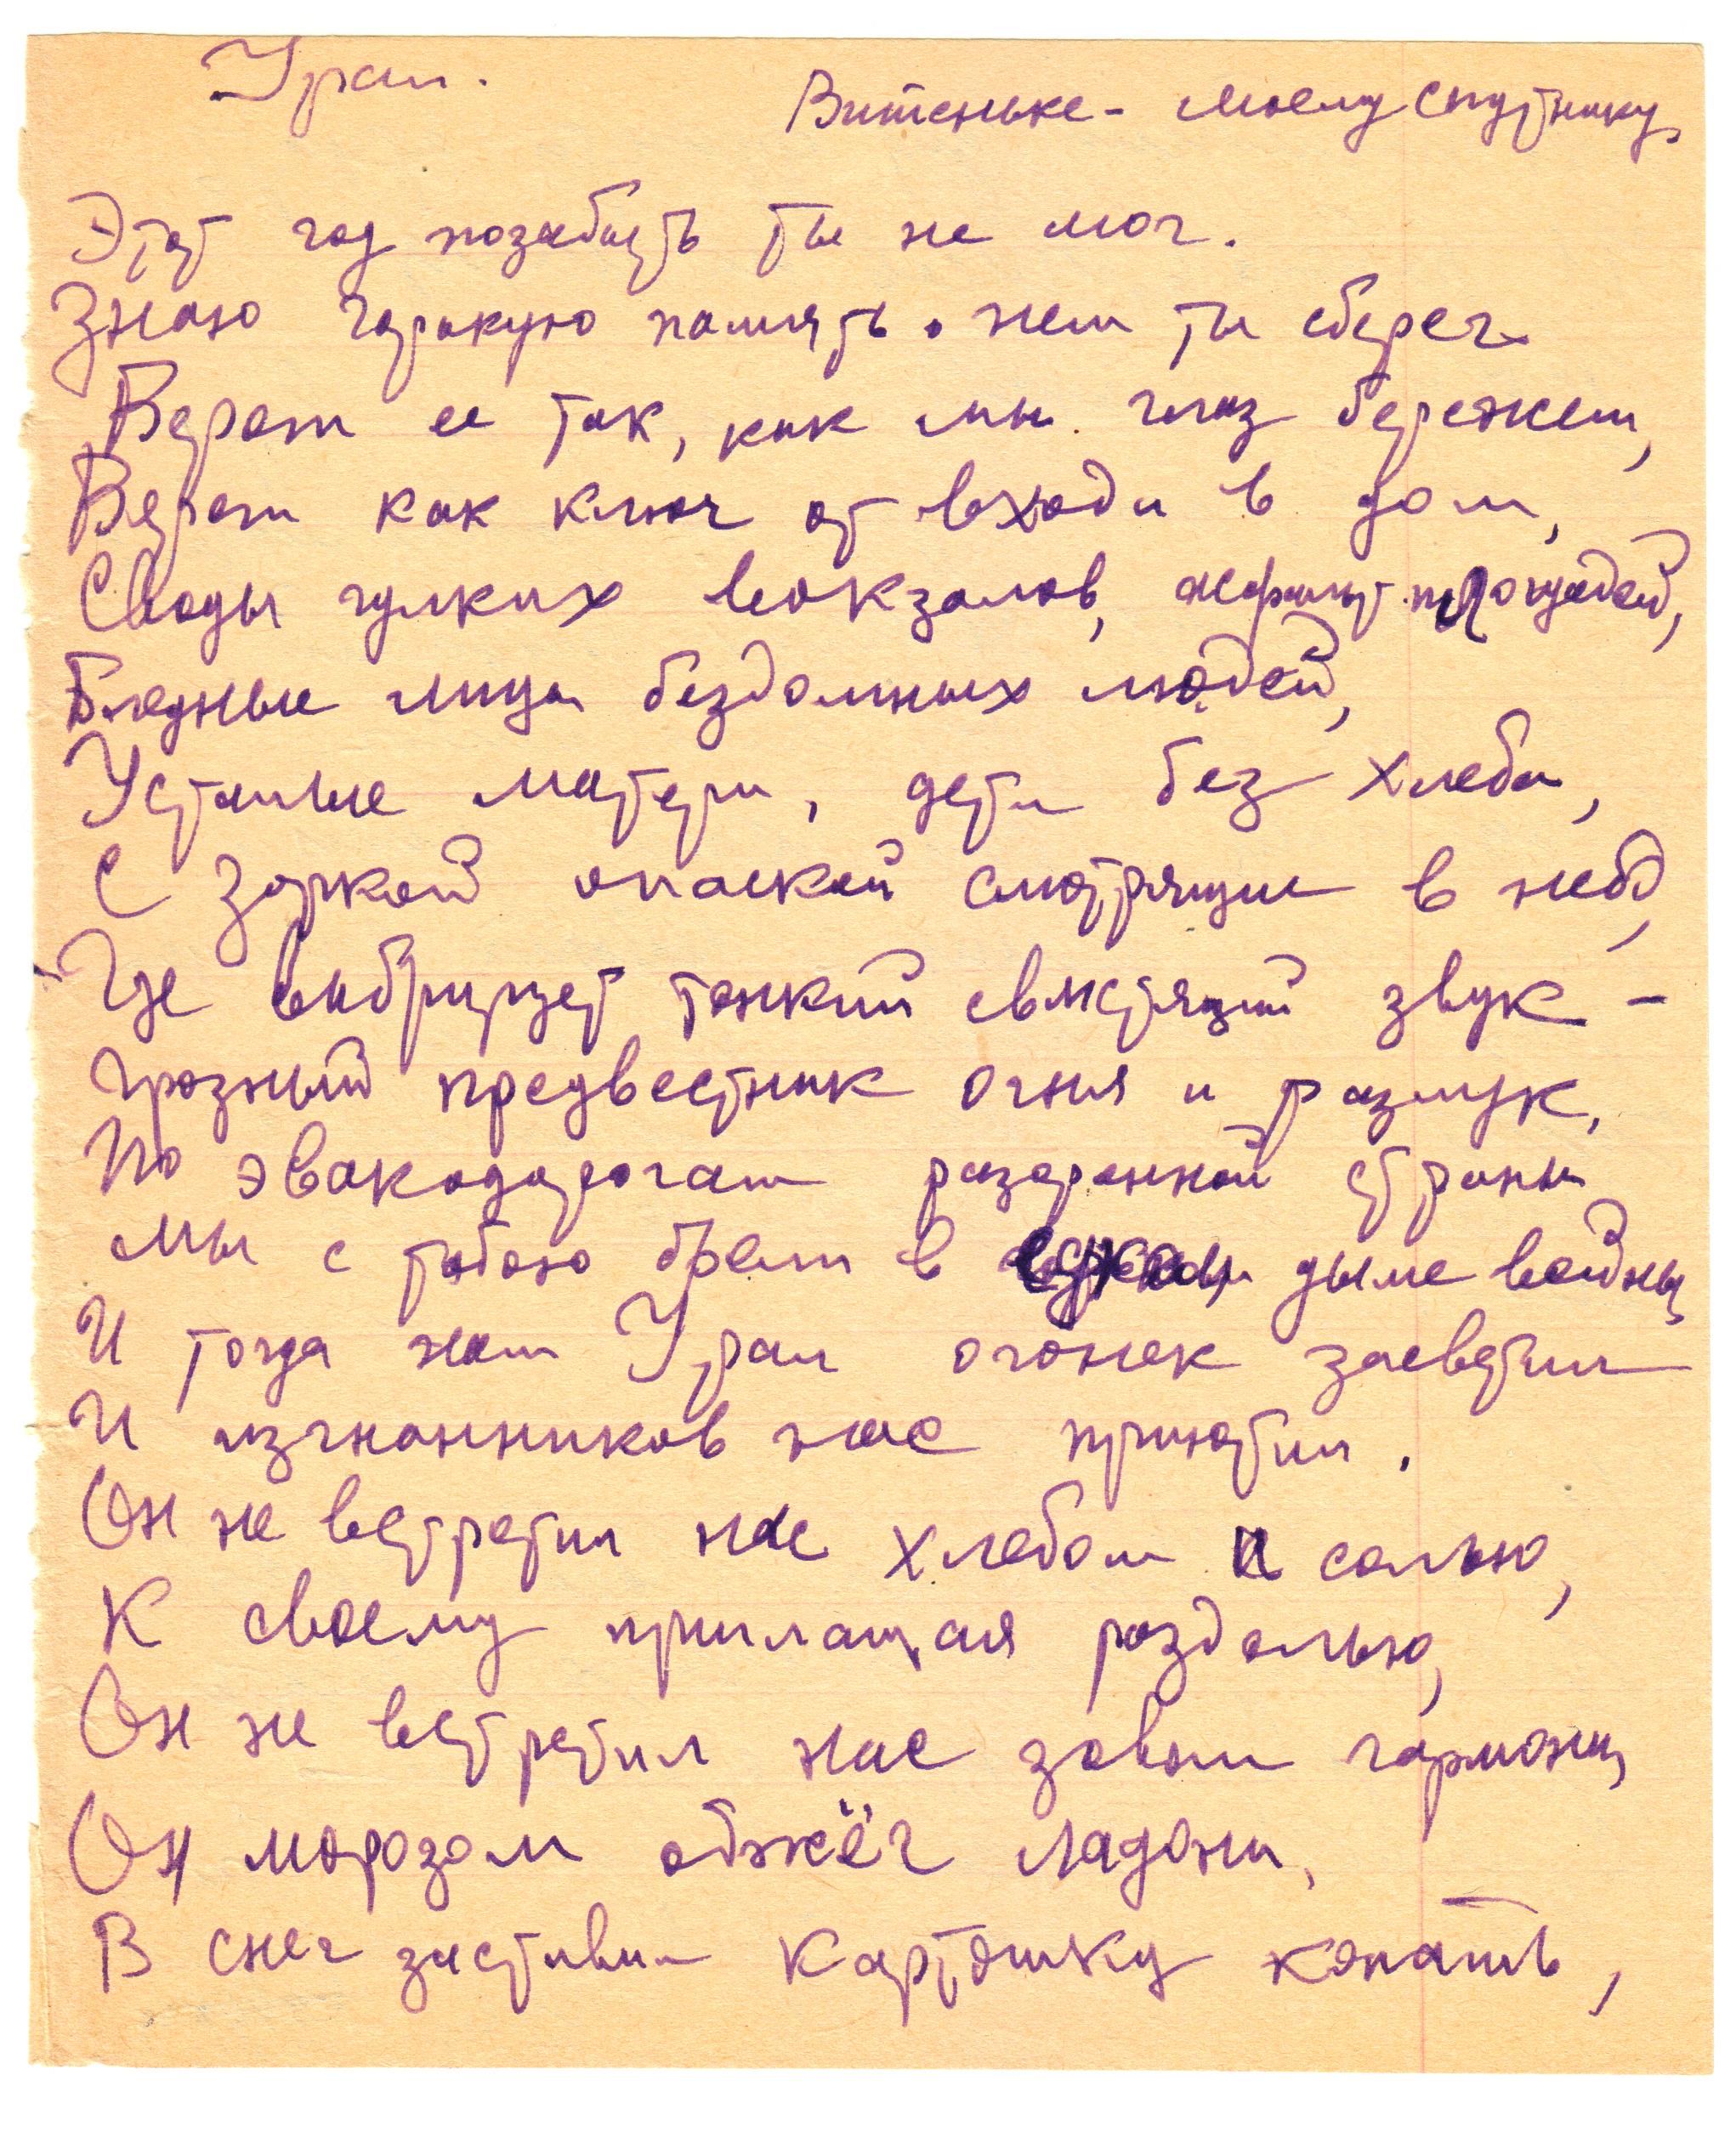 Урал.
Витеньке - моему спутнику.
Этот год позабыть ты не мог.
Знаю горькую память о нем ты сберег
Берег ее так, как мы глаз бережем,
Берег как ключ от входа в дом,
Своды гулких вокзалов, асфальт площадей,
Бледные лица бездомных людей,
Усталые матери, дети без хлеба,
С зоркой опаской смотрящие в небо,
Где вибрирует тонкий свистящий звук -
Грозный предвестник огня и разлук.
По эвакодорогам разоренной страны
мы с тобою брели в дыме войны
И тогда нам Урал огонек засветил
И изгнанников нас приютил.
Он не встретил нас хлебом и солью,
К своему приглашая раздолью,
Он не встретил нас зовом гармони,
Он морозом обжёг ладони,
В снег заставил картошку копать,